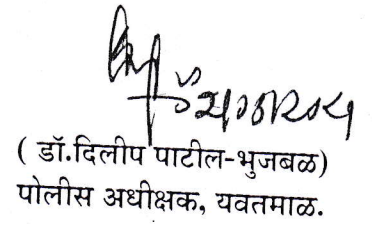 ( डॉ.दिलीप पाटील-भुजबळ)
पोलीस अधीक्षक, यवतमाळ.